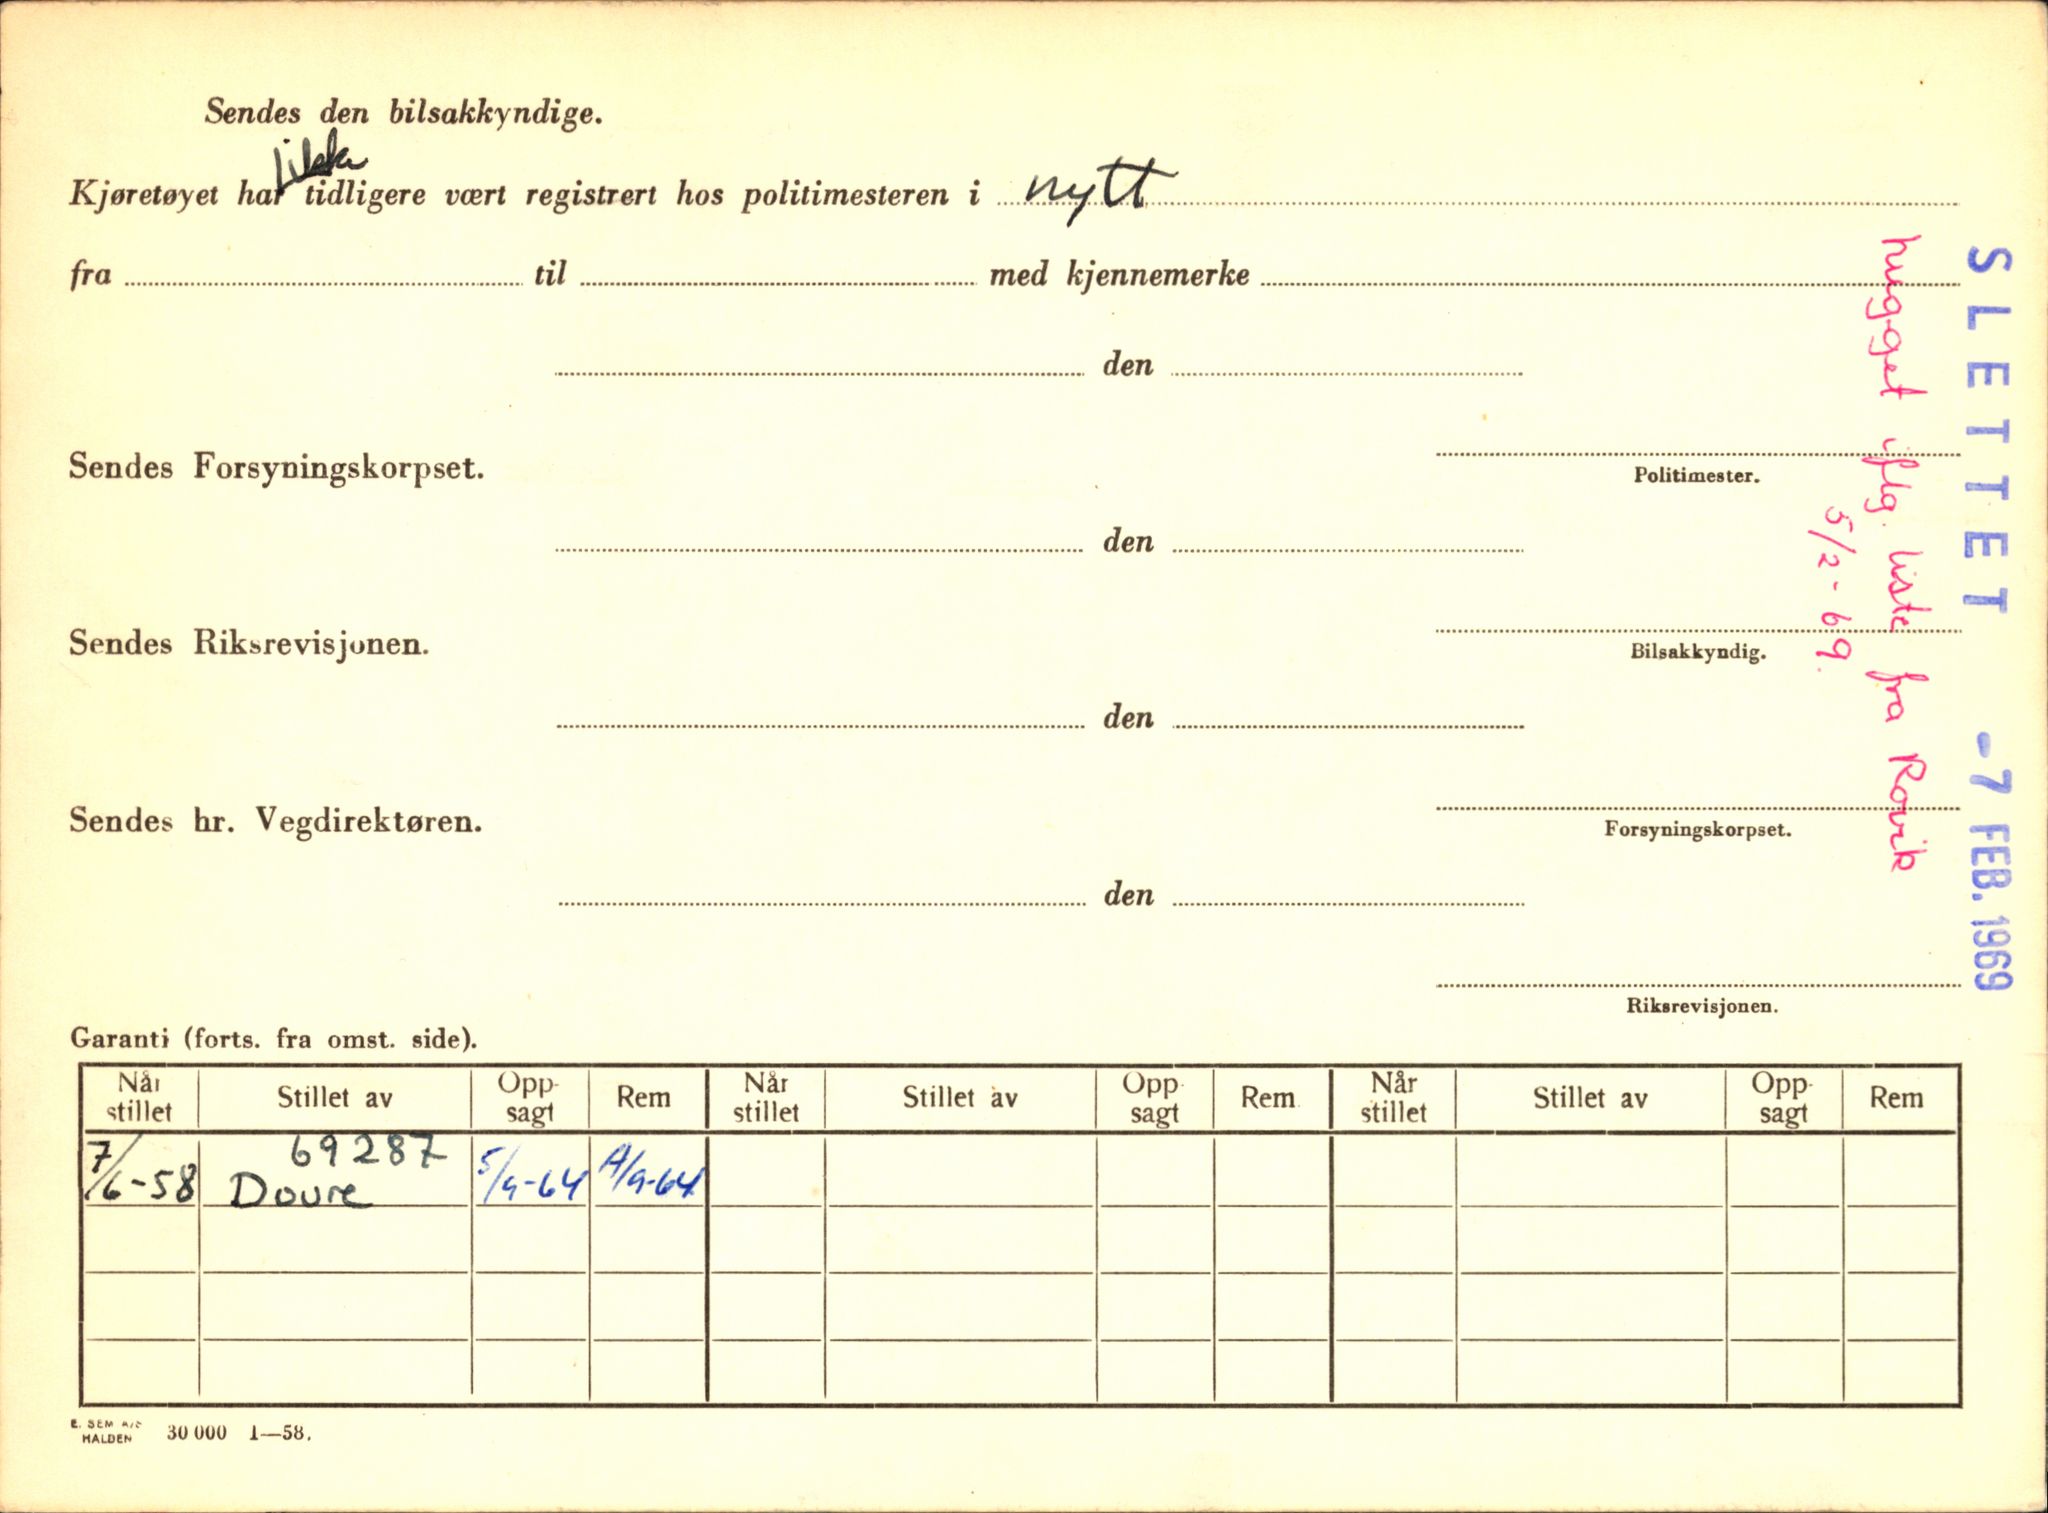 Sendes den bilsakkyndige.
Kjøretøyet har ikke tidligere vært registrert hos politimesteren i nytt
fra til med kjennemerke
den
Sendes Forsyningskorpset.
Politimester.
den
Sendes Riksrevisjonen.
Bilsakkyndig.
den
Sendes hr. Vegdirektøren.
Forsyningskorpset.
den
Riksrevisjonen.
hugget iflg. liste fra Rovik
5/2-69.
SLETTET -7 FEB. 1969
Garanti (forts. fra omst. side).
Når stillet Stillet av Opp-sagt Rem Når stillet Stillet av Opp-sagt Rem Når stillet Stillet av Opp-sagt Rem
69287
7/6-58 Dovre 5/9-64 A/9-64
E. SEM A/S
HALDEN 30 000 1—58.